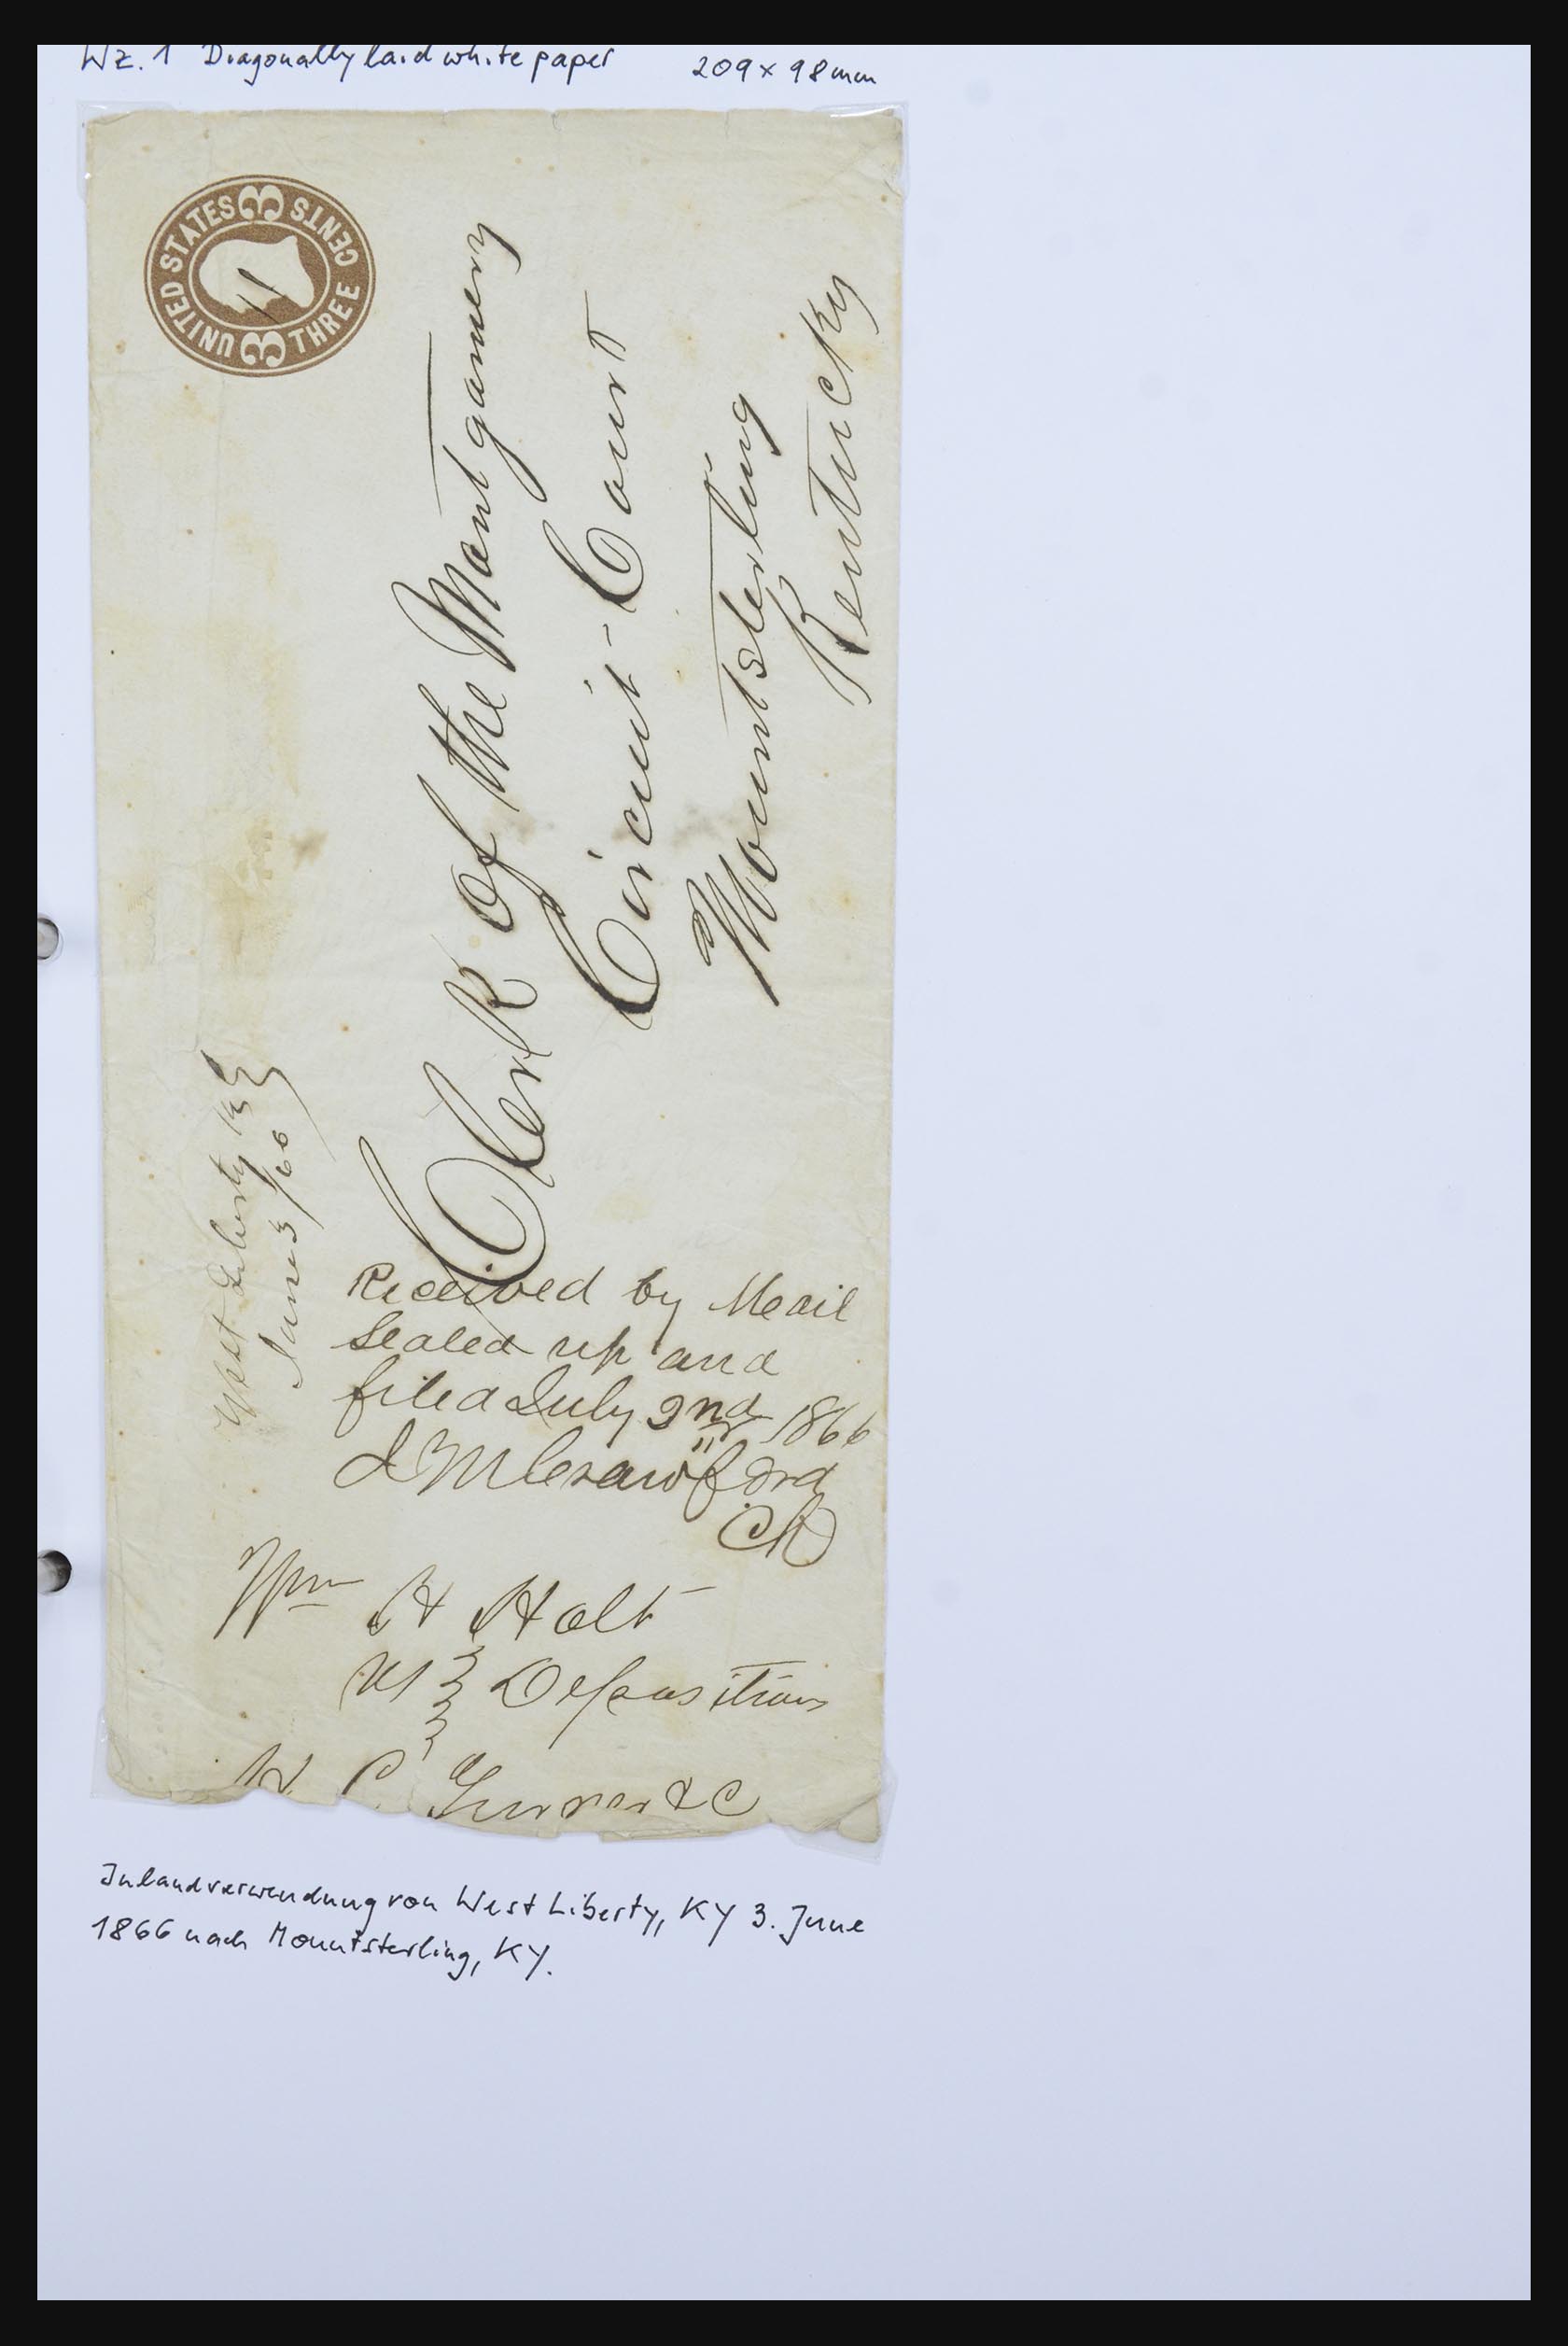 Wz. 1 Diagonally laid white paper 209 x 98 mm
UNITED STATES 3 THREE CENTS 3
West Liberty Ky
June 3/66
Clerk of the Montgomery
Circuit Court
Mountsterling
Kentucky
Received by Mail
Sealed up and
filed July 2nd 1866
J M Crawford
Clk
Wm H Holt
vs Depositions
&c
Inlandverwendung von West Liberty, KY 3. June
1866 nach Mountsterling, KY.